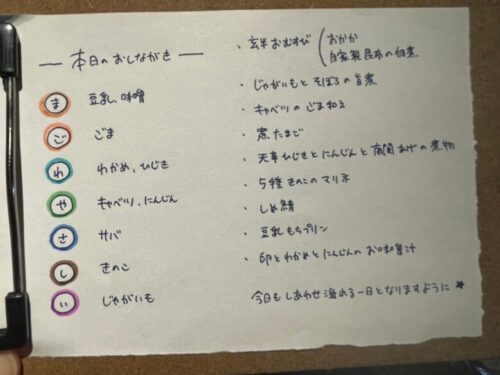 本日のおしながき
ま 豆乳、味噌
ご ごま
わ わかめ、ひじき
や キャベツ、にんじん
さ サバ
し きのこ
い じゃがいも
・玄米おむすび（おかか
自家製昆布の佃煮
・じゃがいもとそぼろの旨煮
・キャベツのごま和え
・煮たまご
・天草ひじきとにんじんと南関あげの煮物
・5種きのこのマリネ
・しめ鯖
・豆乳もちプリン
・卵とわかめとにんじんのお味噌汁
今日もしあわせ溢れる一日となりますように